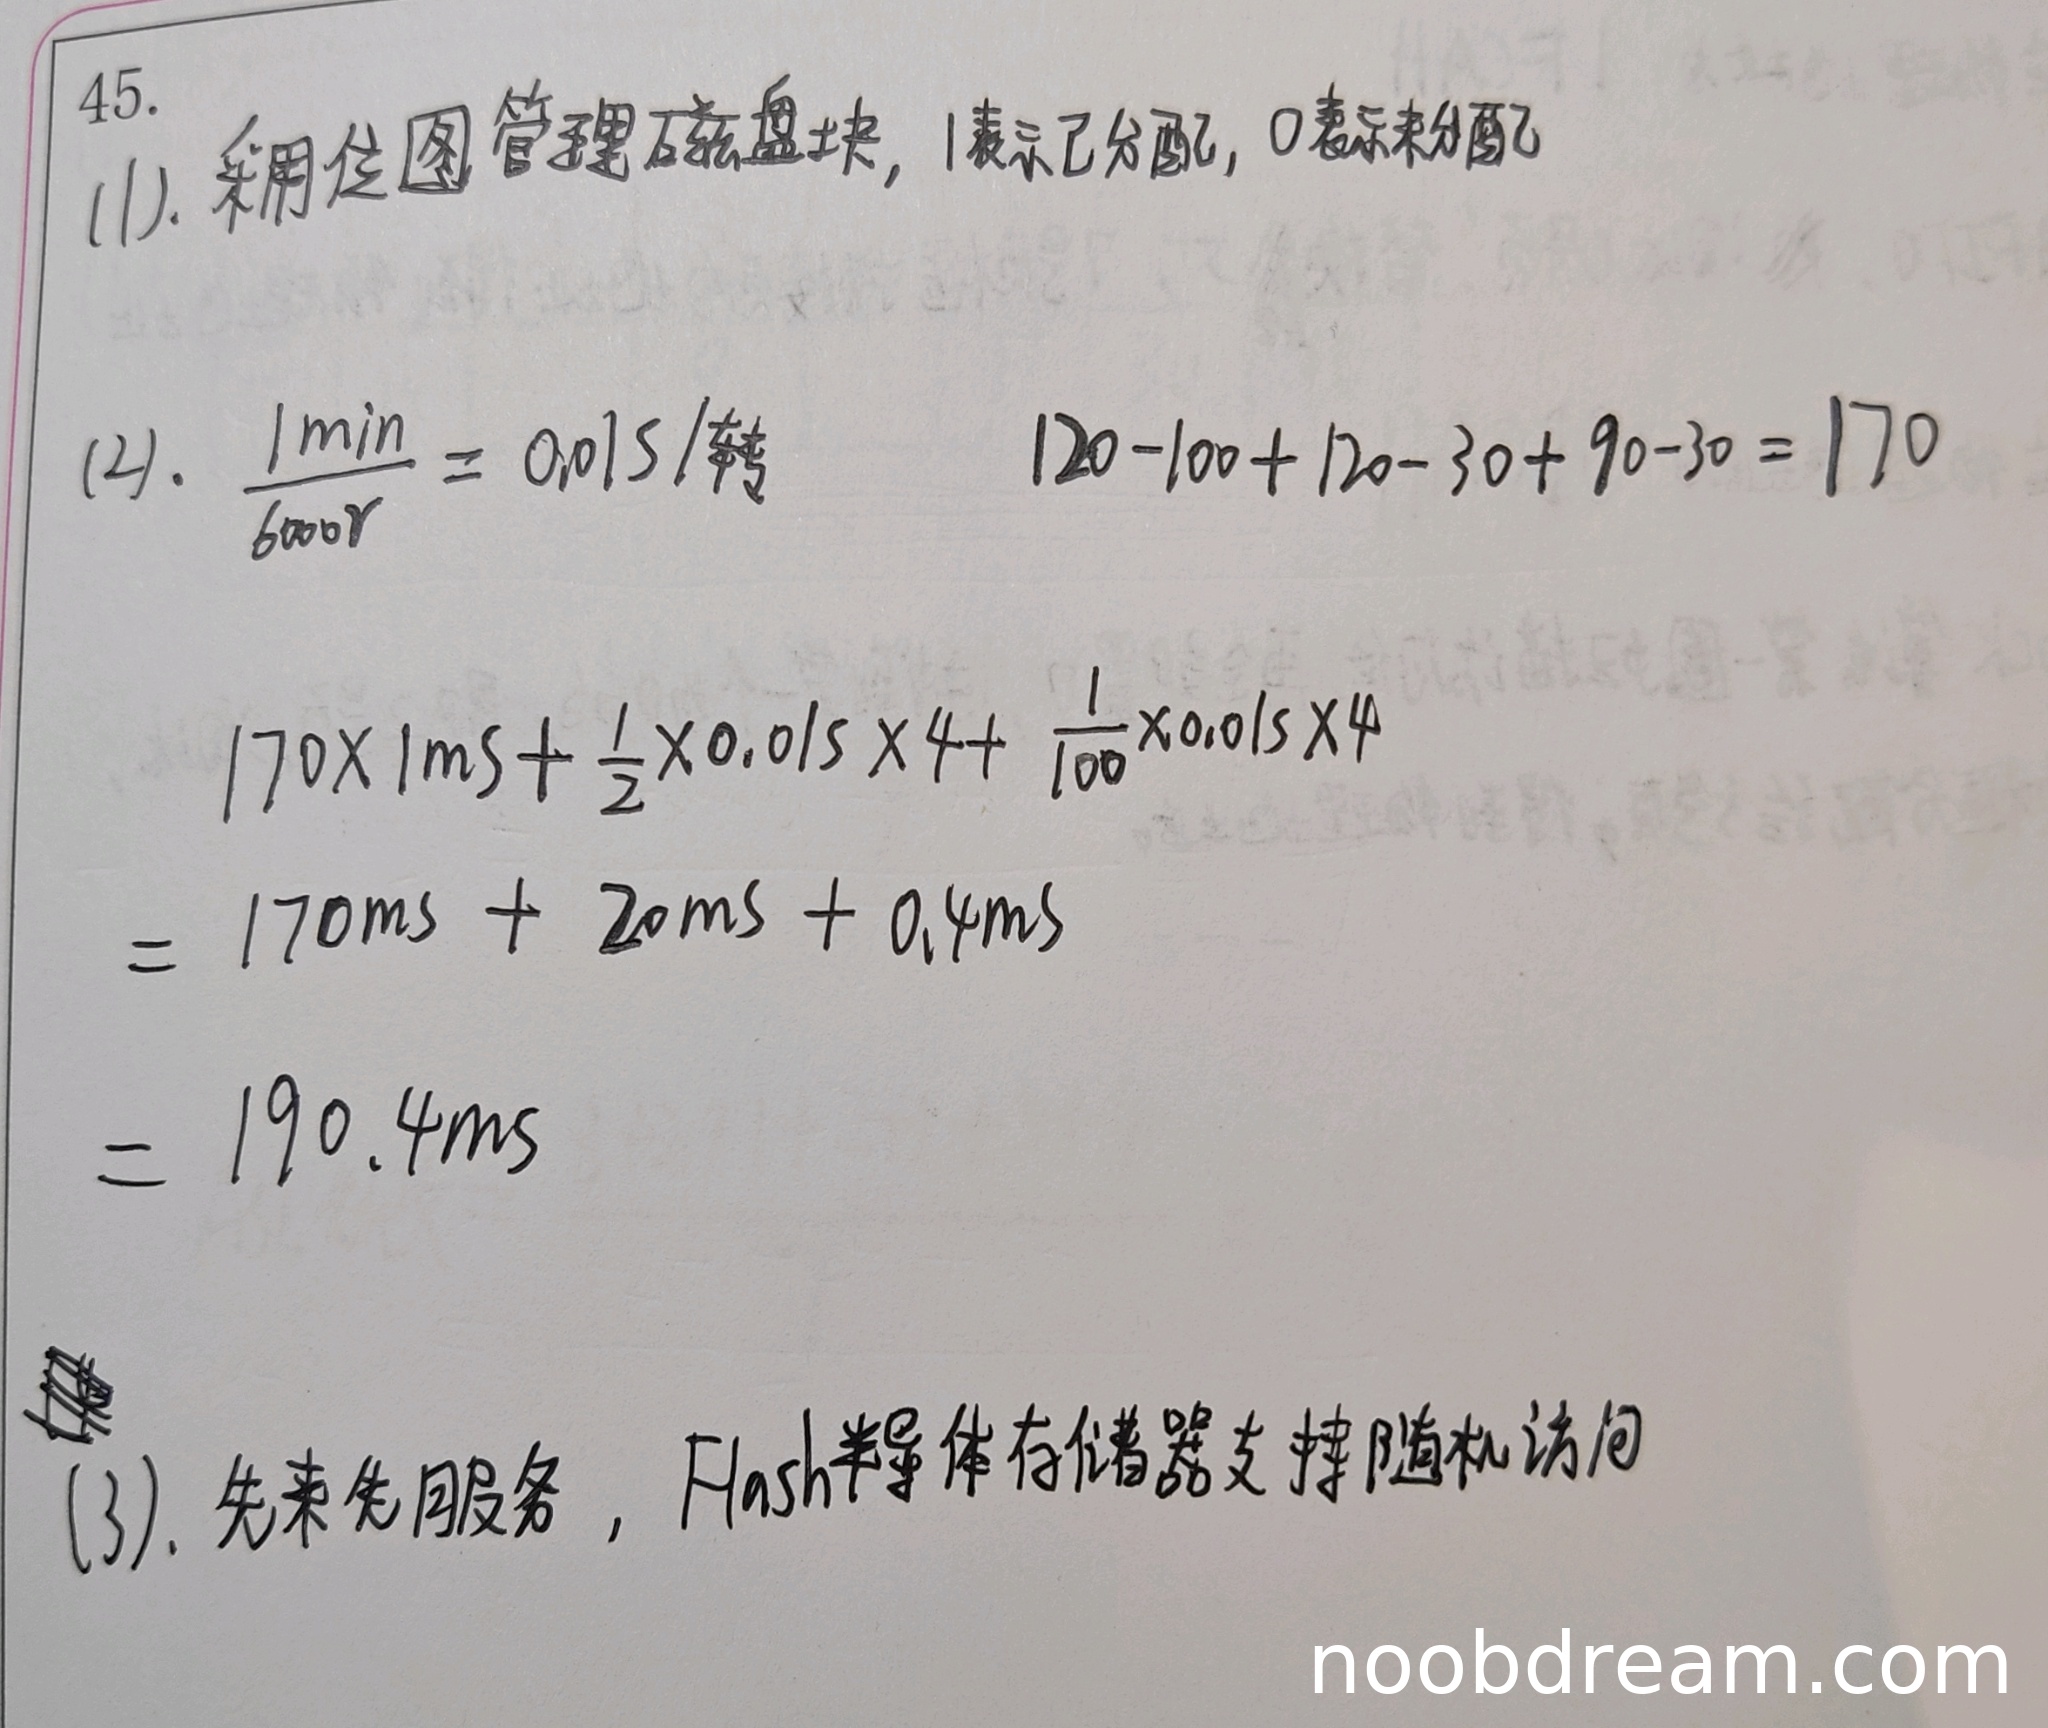 45.
(1). 采用位图管理磁盘块, 1表示已分配, 0表示未分配
(2). 1min/6000r = 0.01s/转 120-100+120-30+90-30=170
170×1ms+1/2×0.01s×4+1/100×0.01s×4
= 170ms + 20ms + 0.4ms
= 190.4ms
(3). 先来先服务, Flash半导体存储器支持随机访问
noobdream.com